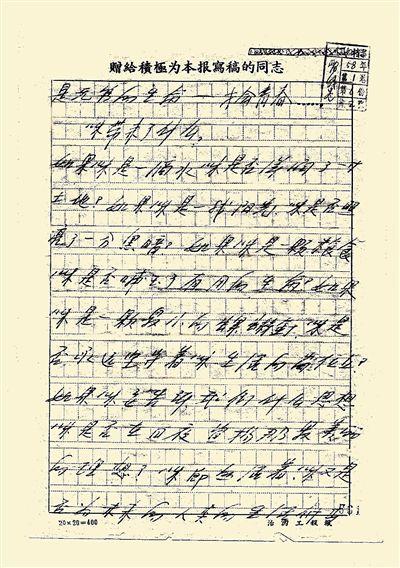 贈給積極为本报寫稿的同志
58年
你带来了什么?
如果你是一滴水 你是否滋润了一寸
土地?如果你是一线阳光,你是否照
亮了一分黑暗?如果你是一颗粮食
你是否哺育了有用的生命?如果
你是一颗最小的螺丝钉,你是
否永远坚守着你生活的岗位?
如果你要告诉我们什么思想
你是否在日夜宣扬那最美丽
的理想?你既然活着,你又是
否为未来的人类的生活付出
20×20=400